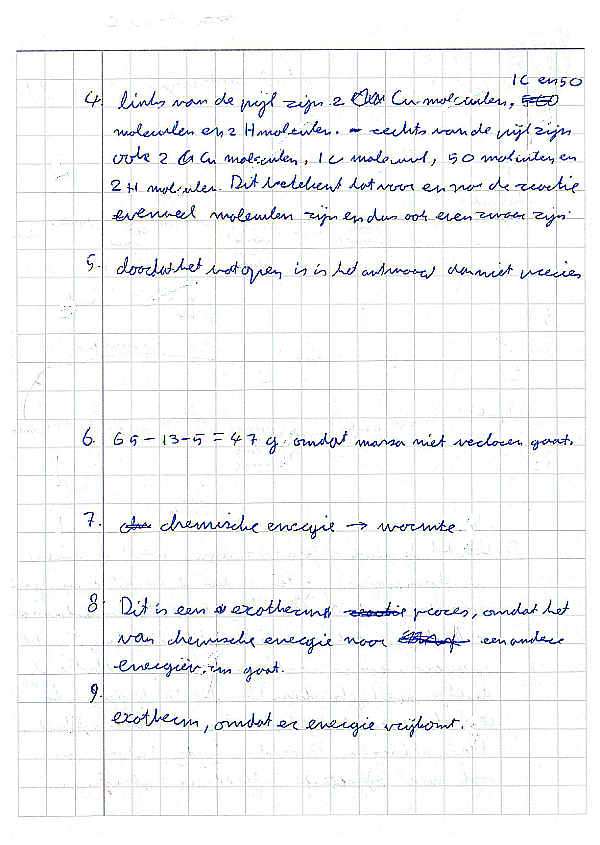 1C en 5O
4. links van de pijl zijn 2 Cu moleculen,
moleculen en 2 H moleculen. rechts van de pijl zijn
ook 2 Cu moleculen, 1 C molecuul, 5 O moleculen en
2 H moleculen. Dit betekent dat voor en na de reactie
evenveel moleculen zijn en dus ook even zwaar zijn.
5. doordat het vat open is is het antwoord dan niet precies
6. 65 - 13 - 5 = 47 g. omdat massa niet verloren gaat.
7. chemische energie → warmte
8 Dit is een exotherm proces, omdat het
van chemische energie naar een andere
energie gaat.
9.
exotherm, omdat er energie vrijkomt.